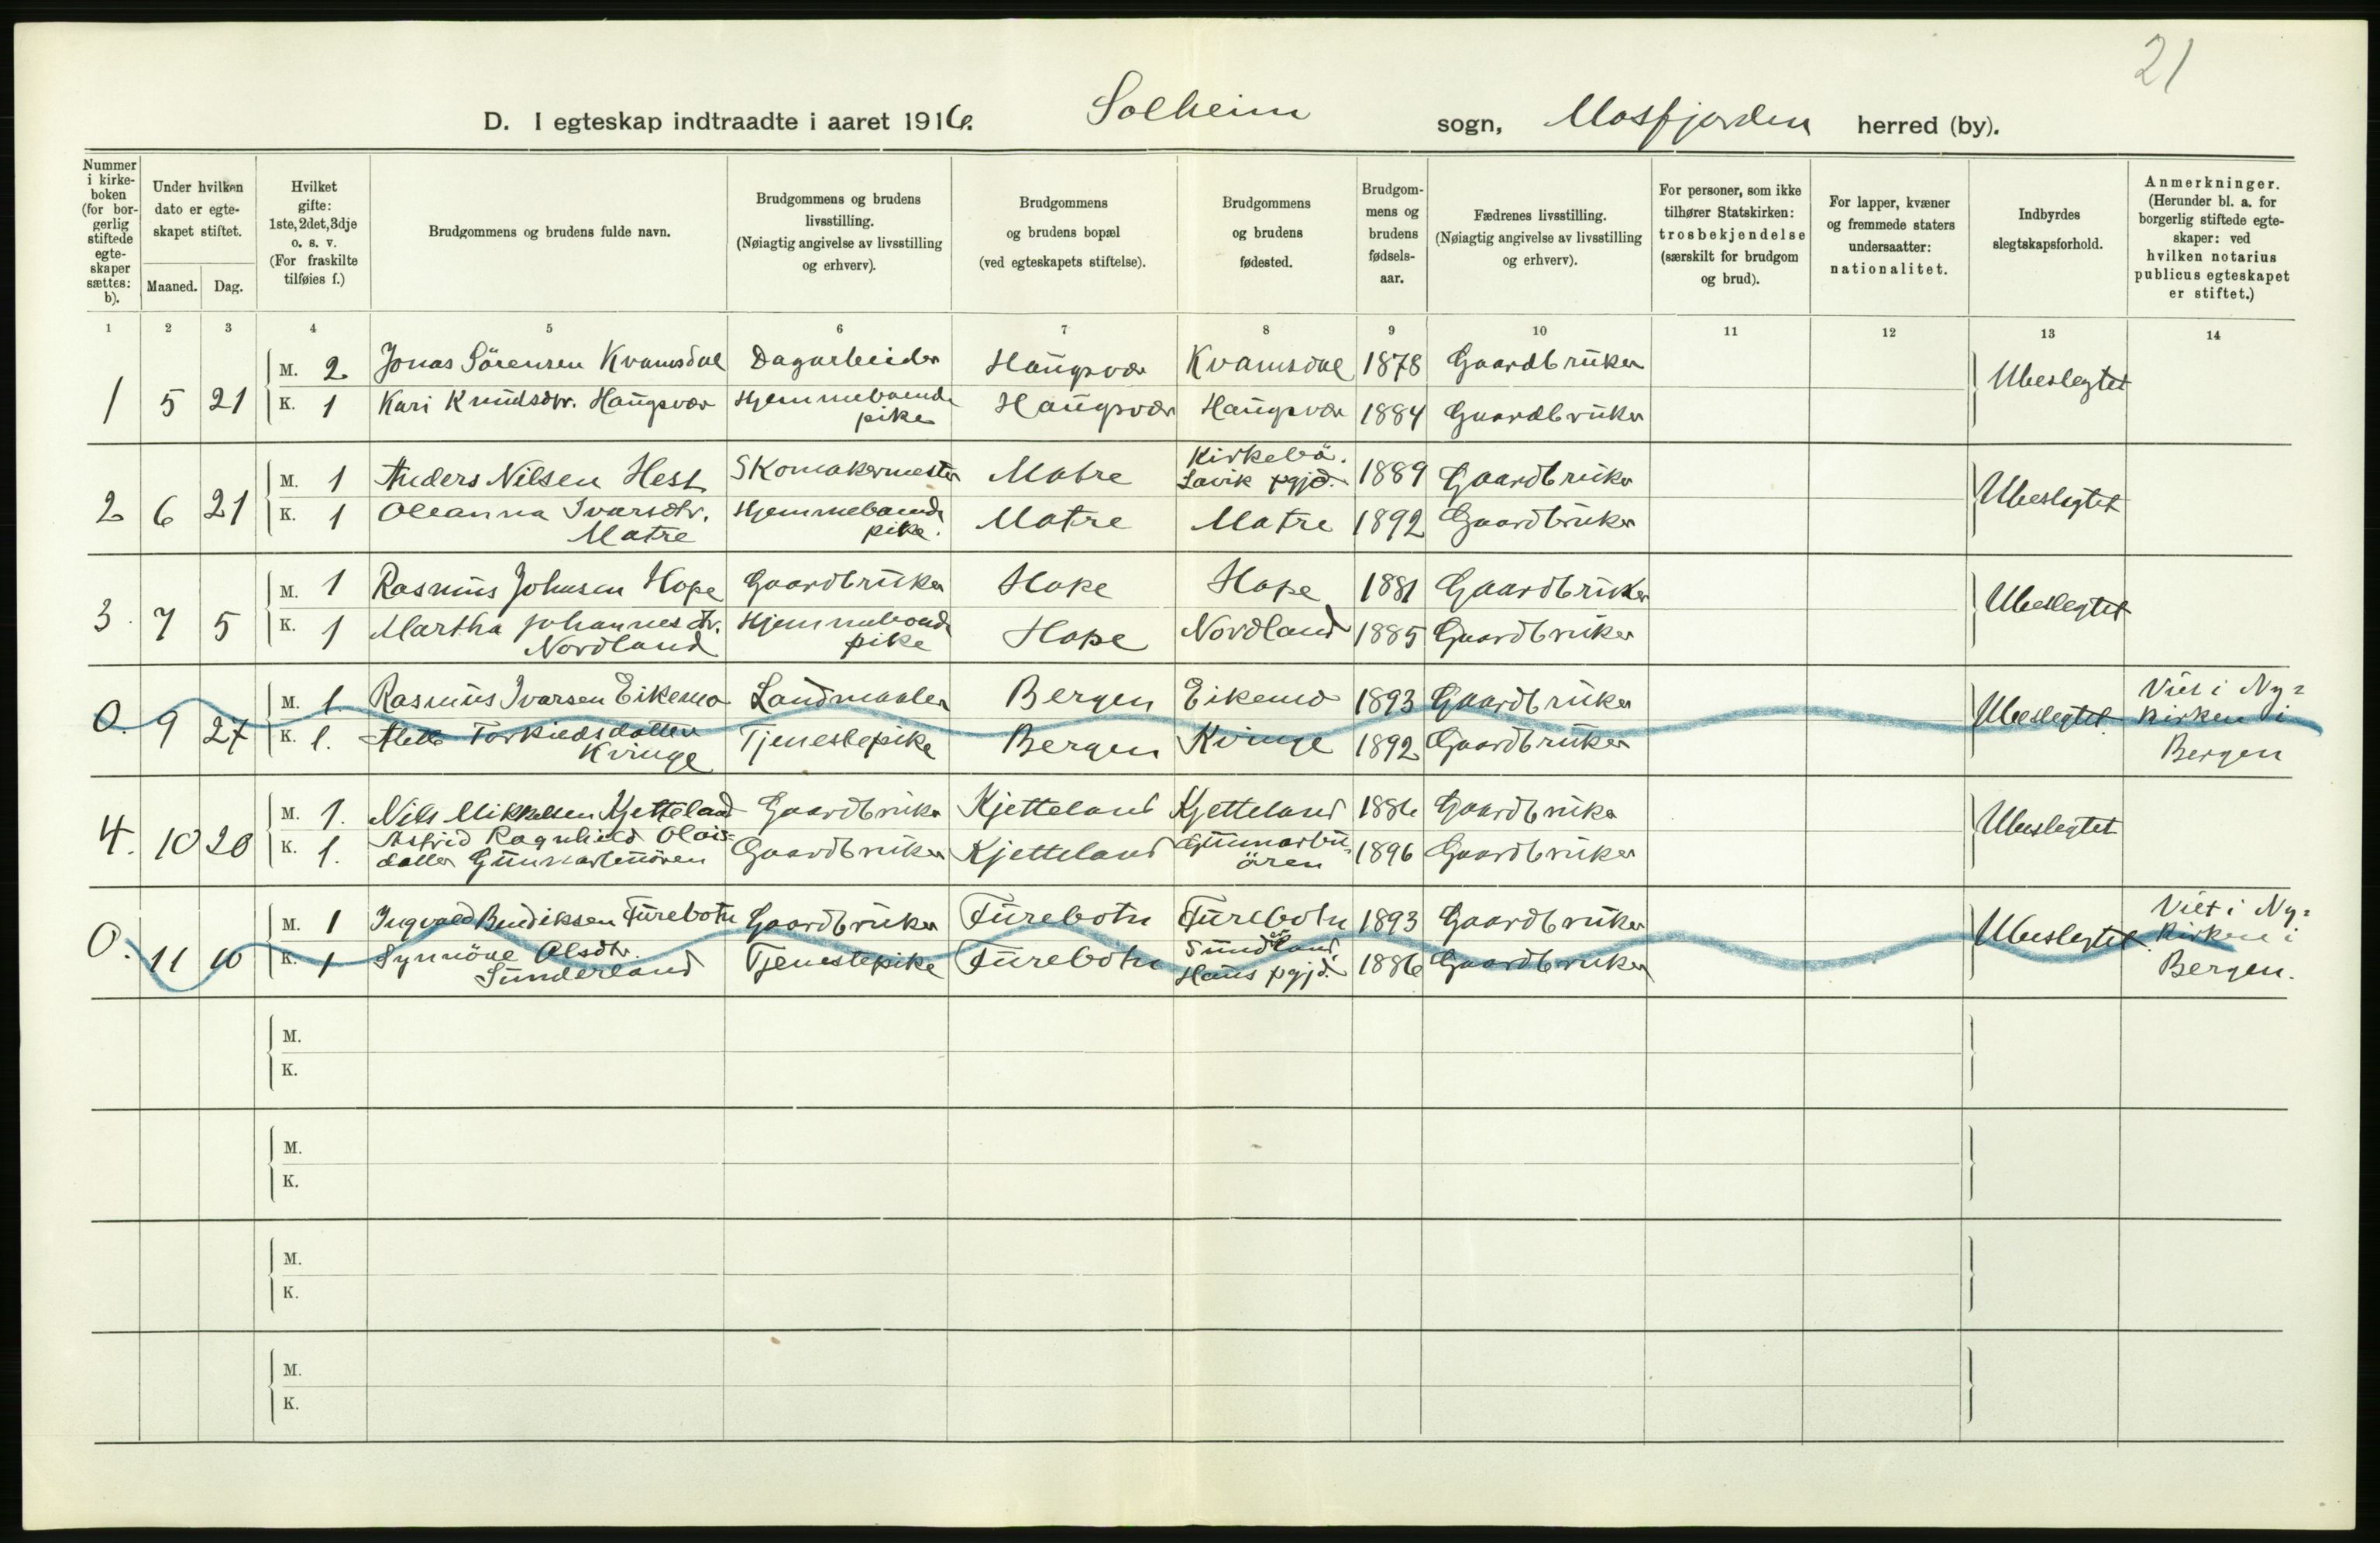 21
D. I egteskap indtraadte i aaret 1916. Solheim sogn, Masfjorden herred (by).
Nummer i kirke-boken (for bor-gerlig stiftede egte-skaper sættes: b).
Under hvilken dato er egte-skapet stiftet.
Maaned. Dag.
Hvilket gifte: 1ste, 2det, 3dje o. s. v. (For fraskilte tilføies f.)
Brudgommens og brudens fulde navn.
Brudgommens og brudens livsstilling. (Nøiagtig angivelse av livsstilling og erhverv).
Brudgommens og brudens bopæl (ved egteskapets stiftelse).
Brudgommens og brudens fødested.
Brudgom-mens og brudens fødsels-aar.
Fædrenes livsstilling. (Nøiagtig angivelse av livsstilling og erhverv).
For personer, som ikke tilhører Statskirken: trosbekjendelse (særskilt for brudgom og brud).
For lapper, kvæner og fremmede staters undersaatter: nationalitet.
Indbyrdes slegtskapsforhold.
Anmerkninger. (Herunder bl. a. for borgerlig stiftede egte-skaper: ved hvilken notarius publicus egteskapet er stiftet.)
1 2 3 4 5 6 7 8 9 10 11 12 13 14
1 5 21 M. 2 Jonas Sörensen Kvamsdal Dagarbeider Haugsvær Kvamsdal 1878 Gaardbruker Ubeslegtet
K. 1 Kari Knudsdtr. Haugsvær Hjemmeboende pike Haugsvær Haugsvær 1884 Gaardbruker
2 6 21 M. 1 Anders Nilsen Hest Skomakermester Matre Kirkebö. Lavik pgjd. 1889 Gaardbruker Ubeslegtet
K. 1 Oleanna Ivarsdtr. Matre Hjemmeboende pike. Matre Matre 1892 Gaardbruker
3. 7 5 M. 1 Rasmus Johnsen Hope Gaardbruker Hope Hope 1881 Gaardbruker Ubeslegtet
K. 1 Martha Johannesdtr. Nordland Hjemmeboende pike Hope Nordland 1885 Gaardbruker
0. 9 27 M. 1. Rasmus Ivarsen Eikemo Landmaaler Bergen Eikemo 1893 Gaardbruker Ubeslegtet. Viet i Ny= kirken i Bergen
K. 1. Torkiedsdatter Kvinge Tjenestepike Bergen Kvinge 1892 Gaardbruker
4. 10 20 M. 1. Nils Mikkelsen Kjetteland Gaardbruker Kjetteland Kjetteland 1886 Gaardbruker Ubeslegtet
K. 1. Astrid Ragnhild Olais= datter Gaardbruker Kjetteland 1896 Gaardbruker
0. 11 10 M. 1 Ingvald Bendiksen Furebotn Gaardbruker Furebotn Furebotn 1893 Gaardbruker Ubeslegtet. Viet i Ny= kirken i Bergen.
K. 1 Synnöve Olsdtr. Sunderland Tjenestepike Furebotn Sunderland, Haus pgjd. 1886 Gaardbruker
M.
K.
M.
K.
M.
K.
M.
K.